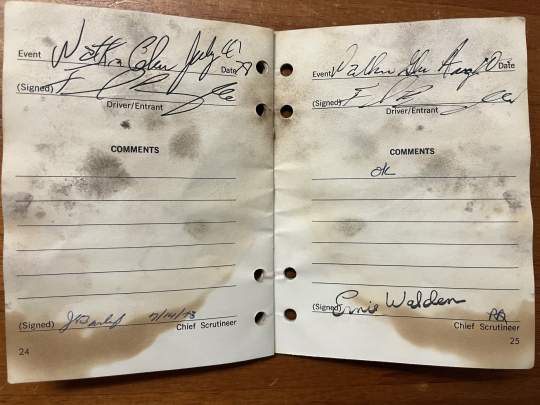 Event Watkins Glen July
Date
(Signed)
Driver/Entrant
COMMENTS
(Signed) 7/14/73
Chief Scrutineer
24
Event Watkins Glen Aug
Date
(Signed)
Driver/Entrant
COMMENTS
OK
(Signed) Ernie Walden
Chief Scrutineer
25